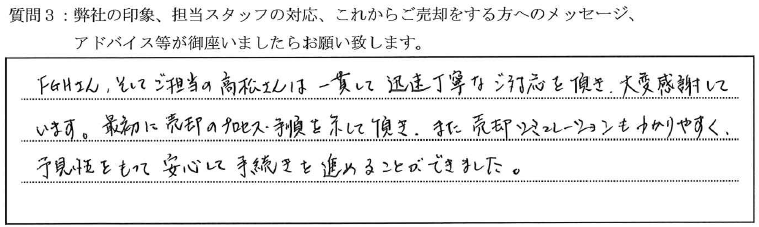 質問３：弊社の印象、担当スタッフの対応、これからご売却をする方へのメッセージ、
アドバイス等が御座いましたらお願い致します。
FGHさん、そしてご担当の高松さんは一貫して迅速丁寧なご対応を頂き、大変感謝して
います。最初に売却のプロセス・手順を示して頂き、また売却シミュレーションもわかりやすく、
予見性をもって安心して手続きを進めることができました。